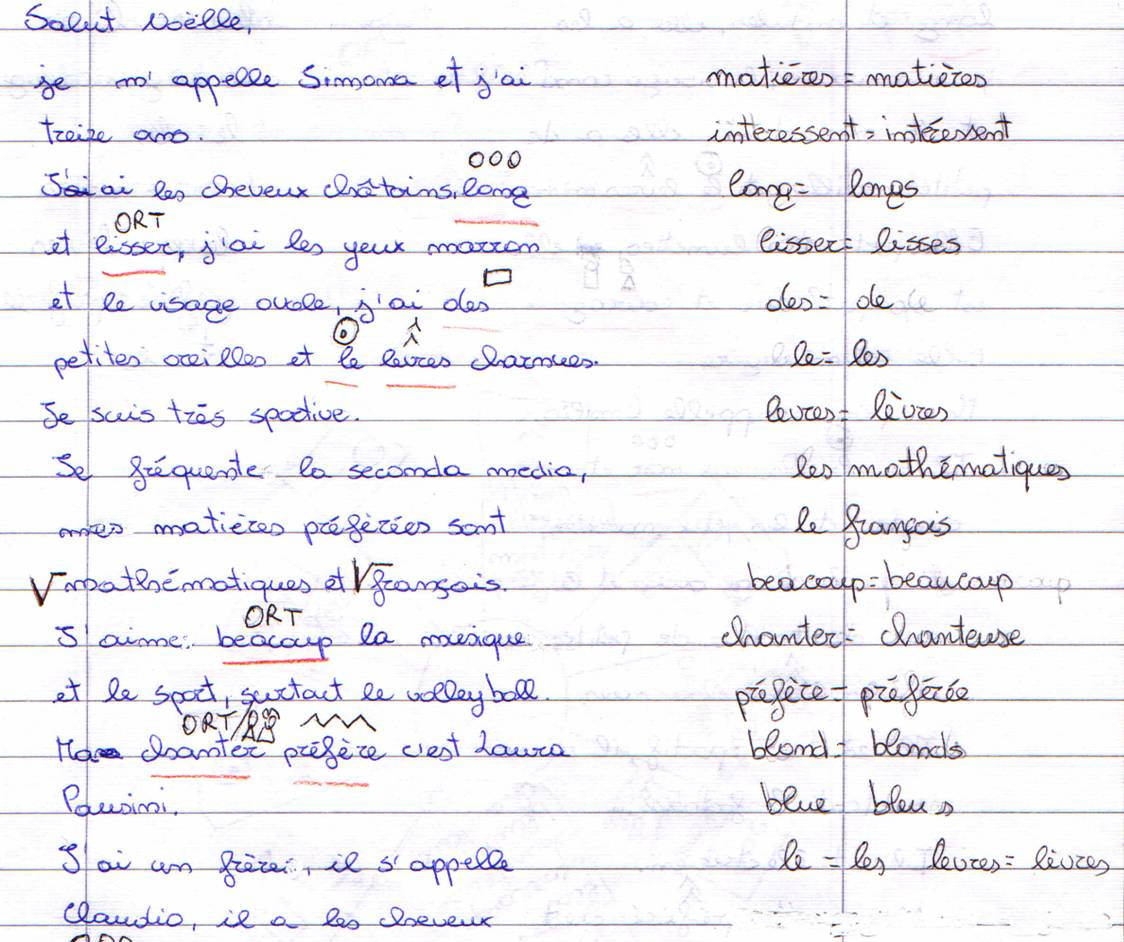 Salut Noëlle,
je m'appelle Simona et j'ai
treize ans.
J'ai les cheveux châtains, long
ORT
et lisser, j'ai les yeux marron
et le visage ovale, j'ai des
petites oreilles et le levres charnues.
Je suis très sportive.
Je fréquente la seconda media,
mes matières préférées sont
mathématiques et français.
ORT
J'aime beacoup la musique
et le sport, surtout le volleyball.
ORT/
Ma chanter préfère c'est Laura
Pausini.
J'ai un frère, il s'appelle
Claudio, il a les cheveux
matiéres = matières
interessent = intéressent
long = longs
lisser = lisses
des = de
le = les
levres = lèvres
les mathématiques
le français
beacoup = beaucoup
chanter = chanteuse
préfère = préférée
blond = blonds
blue = bleus
le = les levres = lèvres